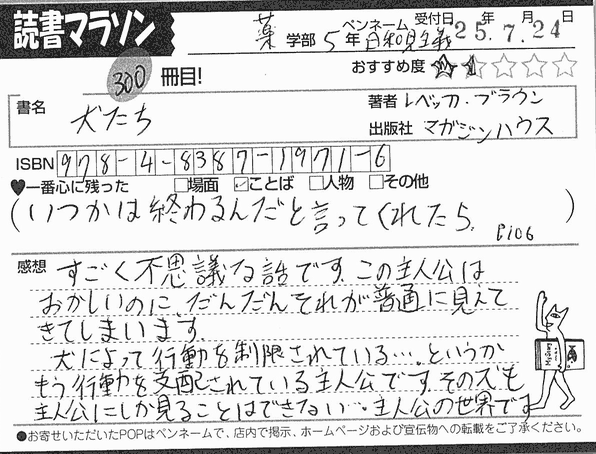 読書マラソン
薬 学部 5年 ペンネーム 日和見主義 受付日 25年.7月.24日
300 冊目!
おすすめ度 ★★☆☆☆
書名 犬たち
著者 レベッカ・ブラウン
出版社 マガジンハウス
ISBN 978-4-8387-1971-6
♥一番心に残った □場面 ☑ことば □人物 □その他
(いつかは終わるんだと言ってくれたら. P106)
感想 すごく不思議な話です。この主人公は
おかしいのに、だんだんそれが普通に見えて
きてしまいます。
犬によって行動を制限されている….というか
もう行動を支配されている主人公です。その犬も
主人公にしか見ることはできない…。主人公の世界です
●お寄せいただいたPOPはペンネームで、店内で掲示、ホームページおよび宣伝物への転載をご了承ください。